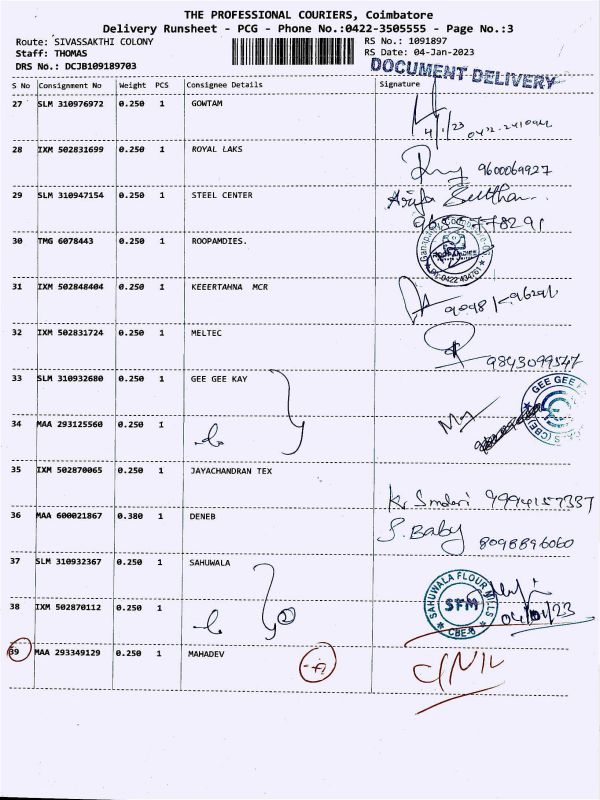 THE PROFESSIONAL COURIERS, Coimbatore
Delivery Runsheet - PCG - Phone No.:0422-3505555 - Page No.:3
Route: SIVASSAKTHI COLONY RS No.: 1091897
Staff: THOMAS RS Date: 04-Jan-2023
DRS No.: DCJB109189703
DOCUMENT DELIVERY
S No Consignment No Weight PCS Consignee Details Signature
27 SLM 310976972 0.250 1 GOWTAM
4/1/23
28 IXM 502831699 0.250 1 ROYAL LAKS
9600069927
29 SLM 310947154 0.250 1 STEEL CENTER
30 TMG 6078443 0.250 1 ROOPAMDIES.
31 IXM 502848404 0.250 1 KEEERTAHNA MCR
32 IXM 502831724 0.250 1 MELTEC
9843099547
33 SLM 310932680 0.250 1 GEE GEE KAY
GEE GEE
34 MAA 293125560 0.250 1
35 IXM 502870065 0.250 1 JAYACHANDRAN TEX
9994157337
36 MAA 600021867 0.380 1 DENEB
S. Baby
8098896060
37 SLM 310932367 0.250 1 SAHUWALA
SAHUWALA FLOUR MILLS
SFM
CBE
04/01/23
38 IXM 502870112 0.250 1
39 MAA 293349129 0.250 1 MAHADEV